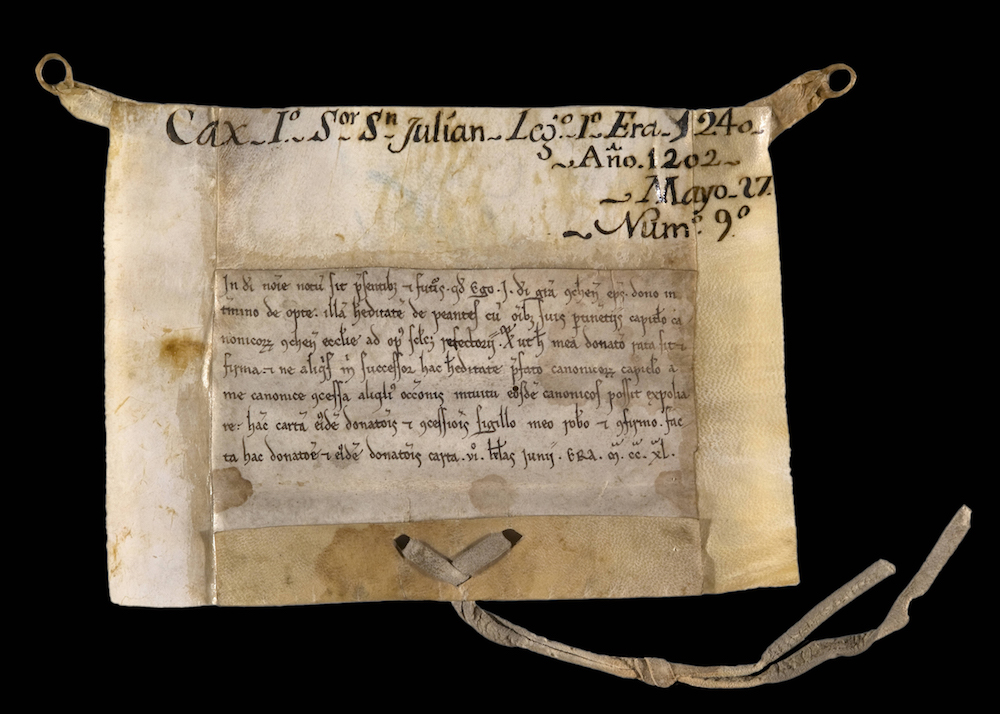 Cax_I.º Sor Sn Julian_Leg.º 1º Era 1240_
Año.1202_
Mayo_27
Num.º 9º
In dī noīe notū sit p̄sentibꝫ ⁊ futuris. qd̄ Ego. J. dī grā ꝯcheñ ep̄s. dono in
t̄mino de opte: illā h̄editatē de peantes cū oībꝫ suis ptinētiis capitlo ca
nonicoꝝ ꝯcheñ eccłie ad opꝰ refectorij. ut mea donatō rata sit ⁊
firma ⁊ ne aliqͥs successoꝝ hac h̄editate p̄fato canonicoꝝ capitlo a
me canonice ꝯcessā occōnis intuitu eosdē canonicos possit expolia
re: hāc cartā donatōis ⁊ ꝯcessiōis sigillo meo robo ⁊ ꝯfirmo. fac
ta hac donatōe ⁊ donatōis carta. vi. kłas junii. ERA. ṁ. cc. xl.